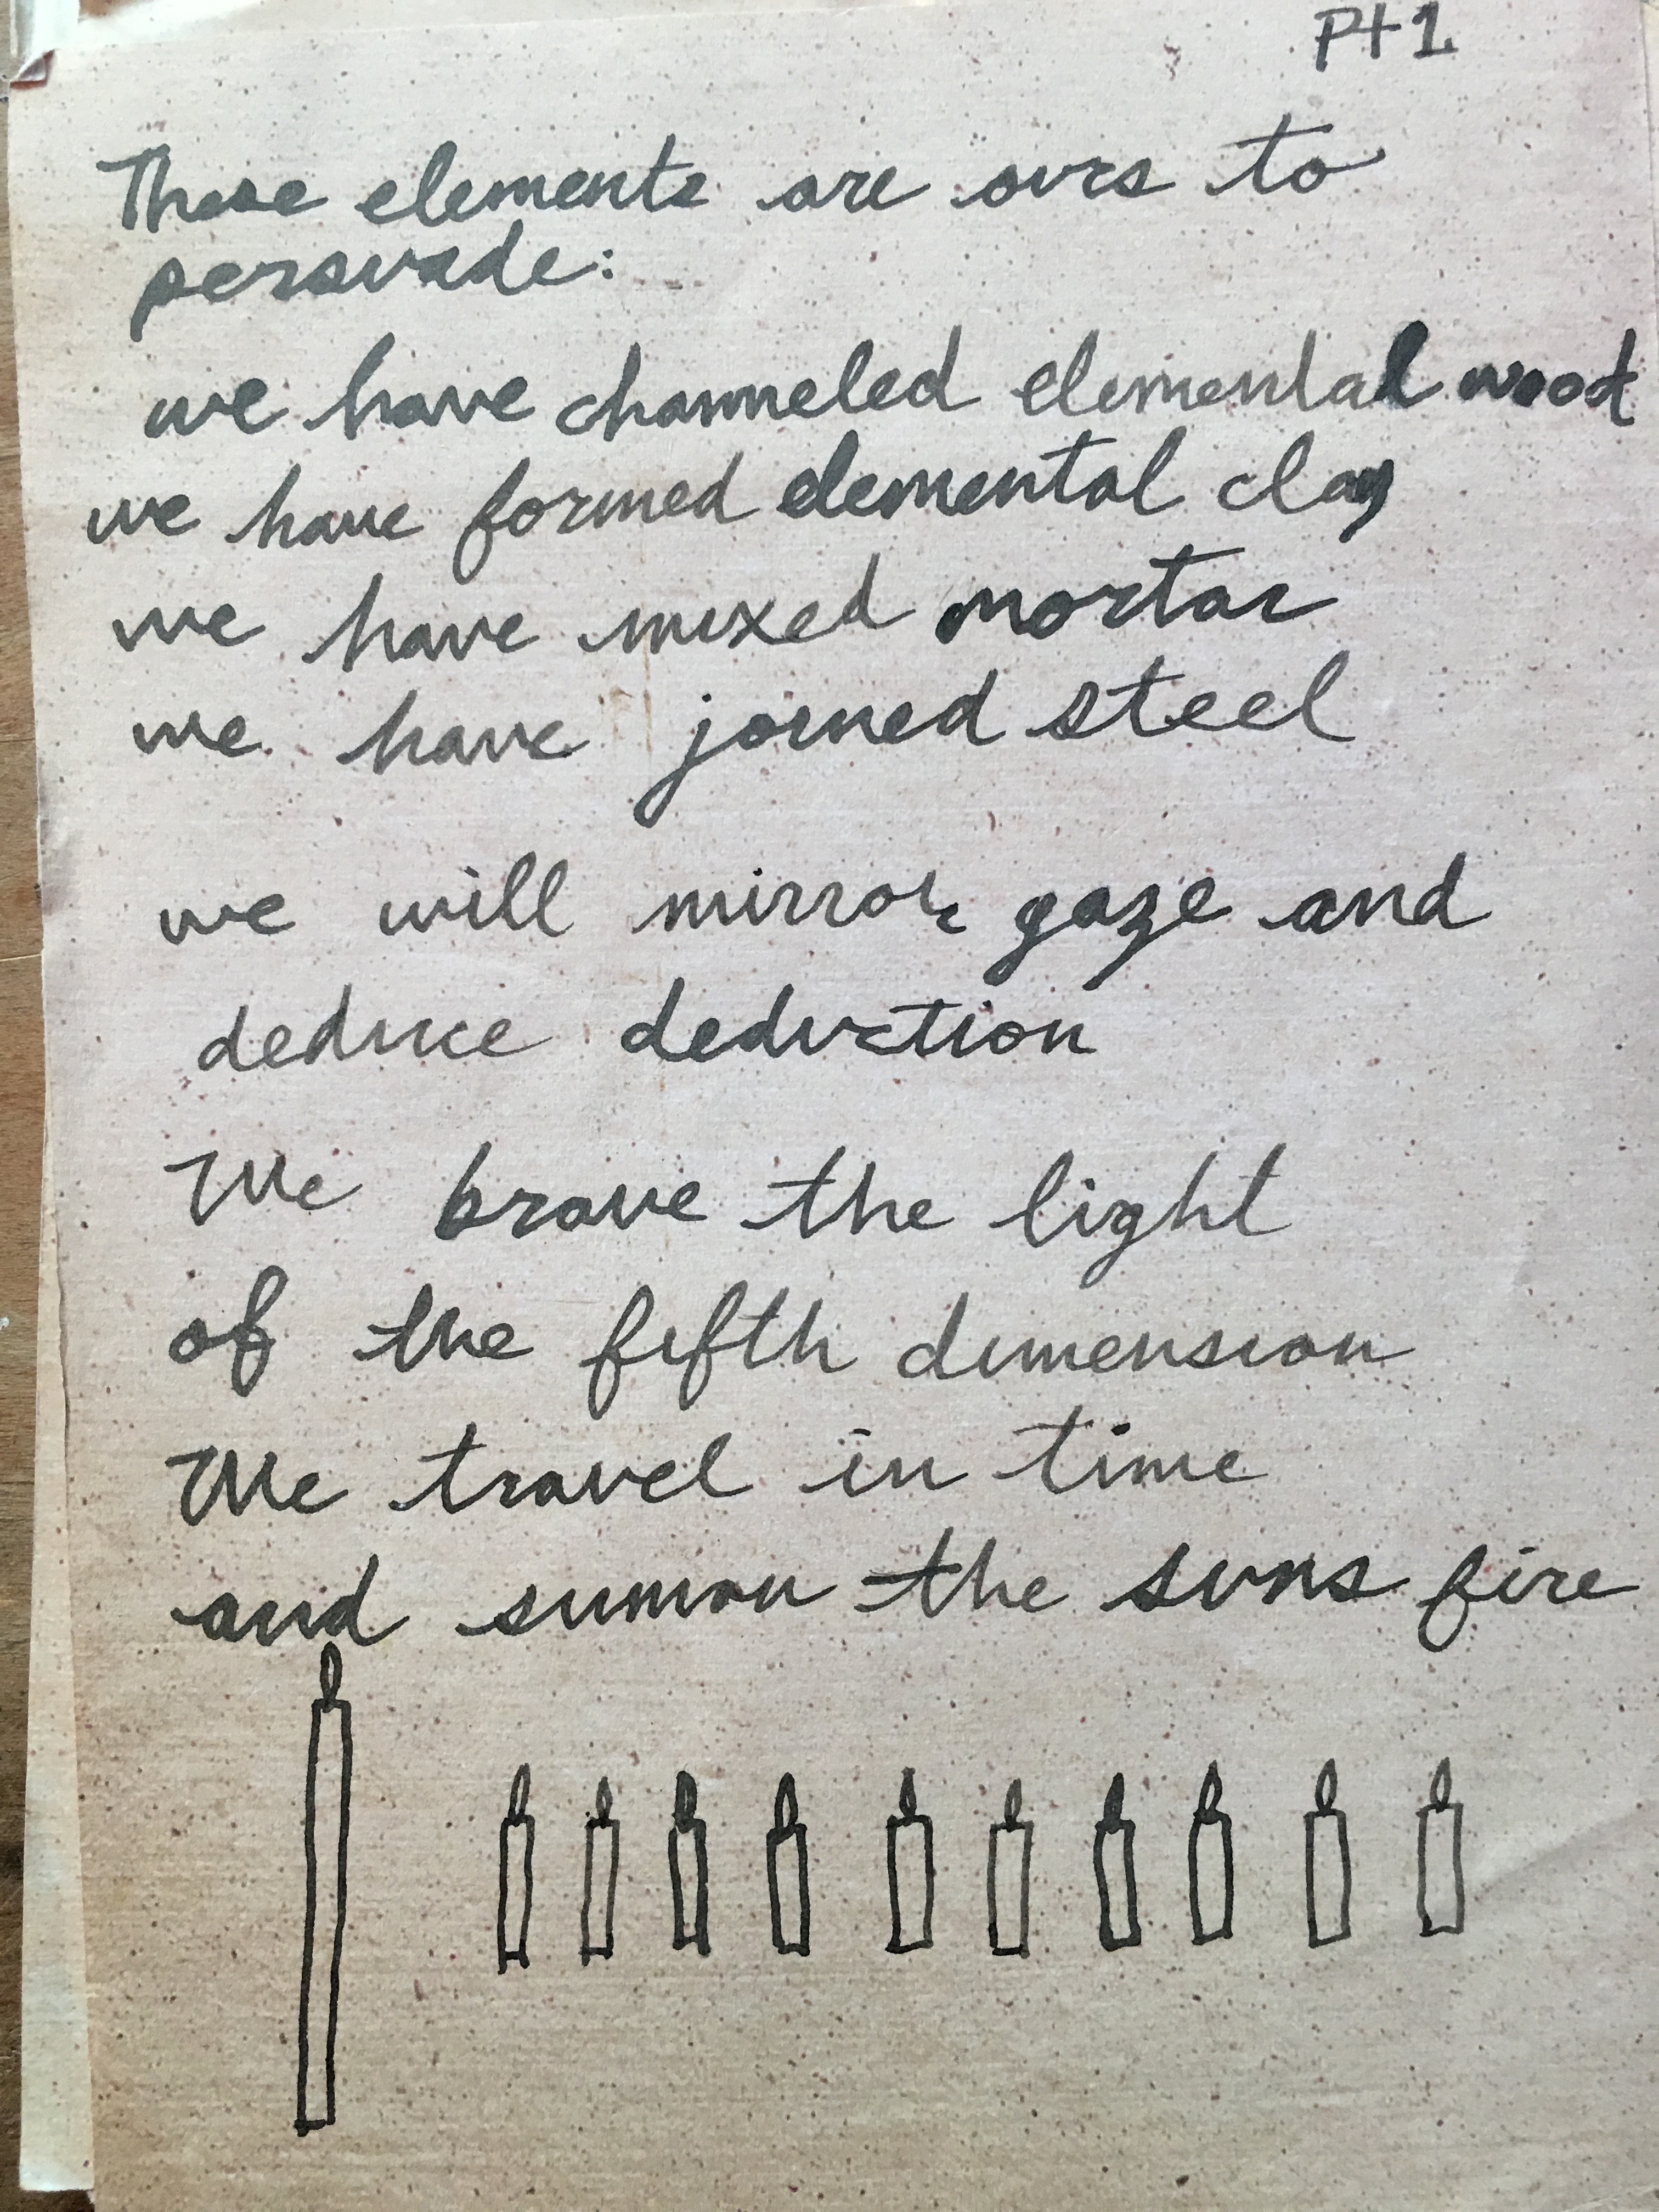 Pt 1
These elements are ours to
persuade:
we have channeled elemental wood
we have formed elemental clay
we have mixed mortar
we have joined steel
we will mirror gaze and
deduce deduction
We brave the light
of the fifth dimension
We travel in time
and sumon the suns fire